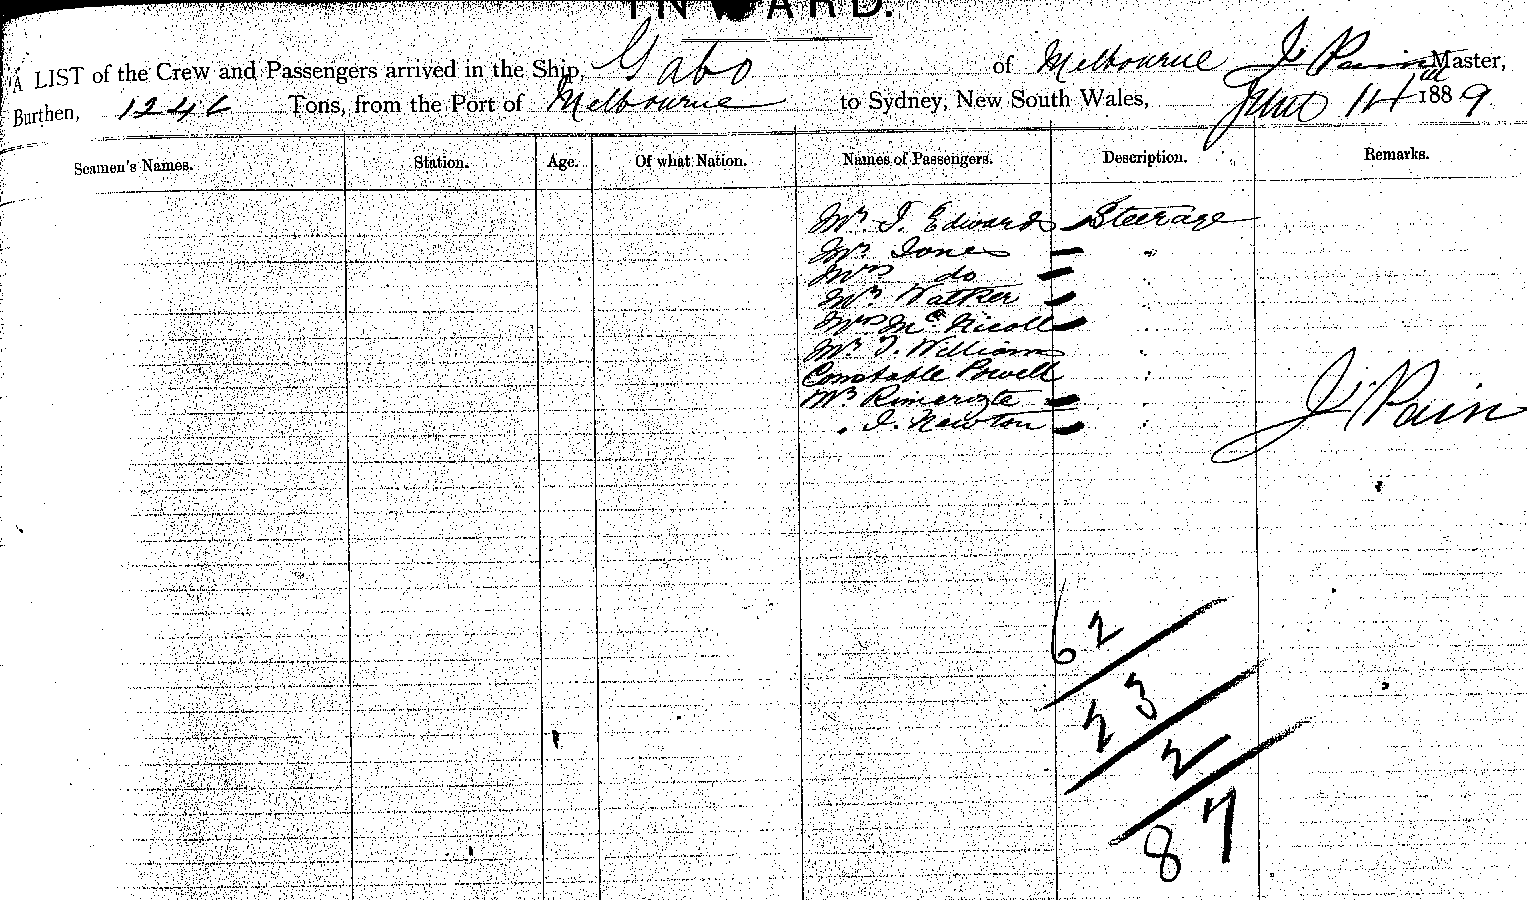 INWARD.
A LIST of the Crew and Passengers arrived in the Ship, Gabo of Melbourne J. Pain Master,
Burthen, 1246 Tons, from the Port of Melbourne to Sydney, New South Wales, June 14th 1889
Seamen's Names. Station. Age. Of what Nation. Names of Passengers. Description. Remarks.
Mr. T. Edwards Steerage
Mr. Jones "
Mrs do "
Mr. Walker "
Mrs McNicoll "
Mr. T. Williams "
Constable Powell "
Mr "
" J. Newton "
J. Pain
62
23
2
87